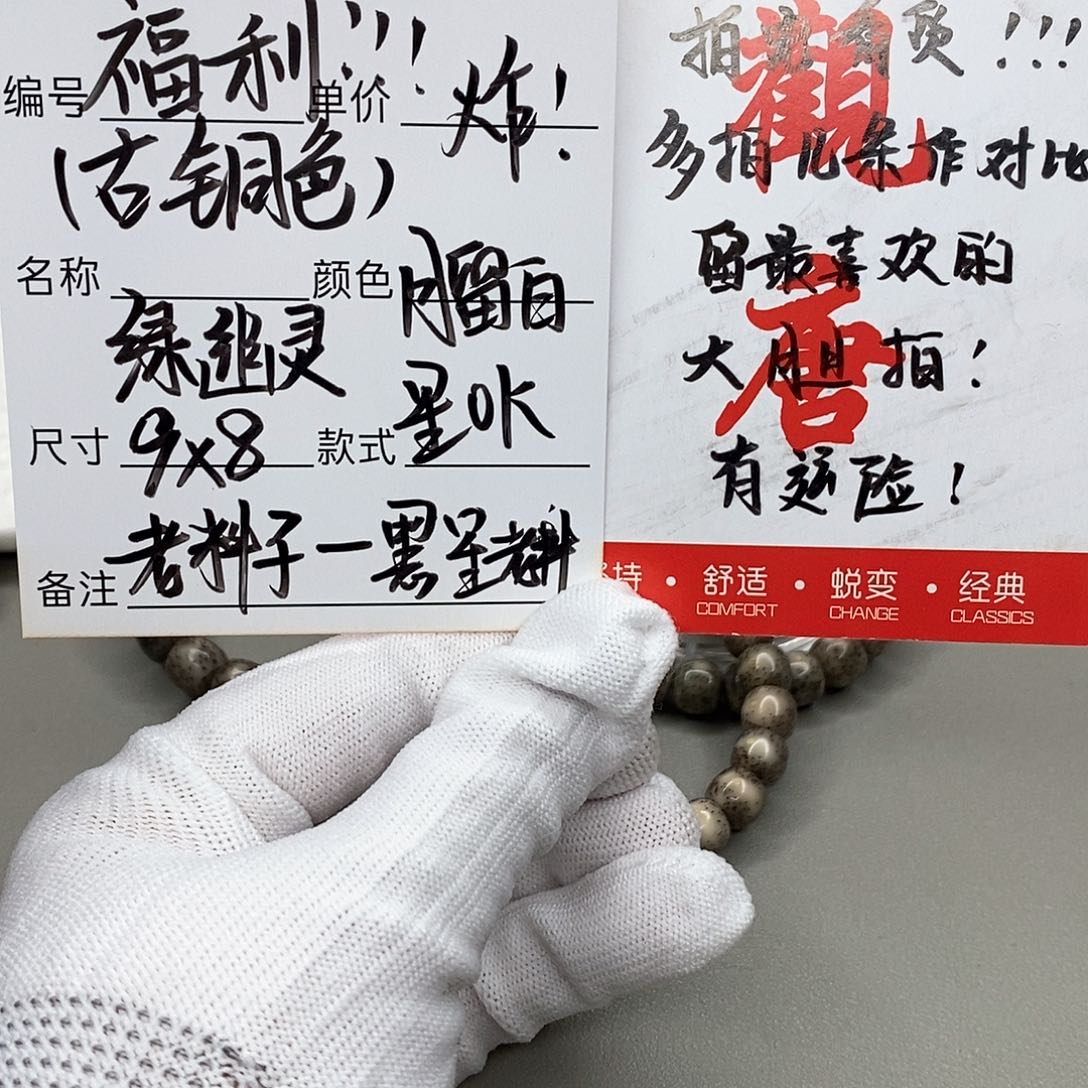 福利!!!
编号 单价 炸!
(古铜色)
名称 颜色 月留白
绿追灵 星水
尺寸 9x8 款式
备注 老料子一黑星老料
觀
唐
多拍几条作对比
留最喜欢的
大胆拍!
有运险!
持 · 舒适 · 蜕变 · 经典
COMFORT CHANGE CLASSICS